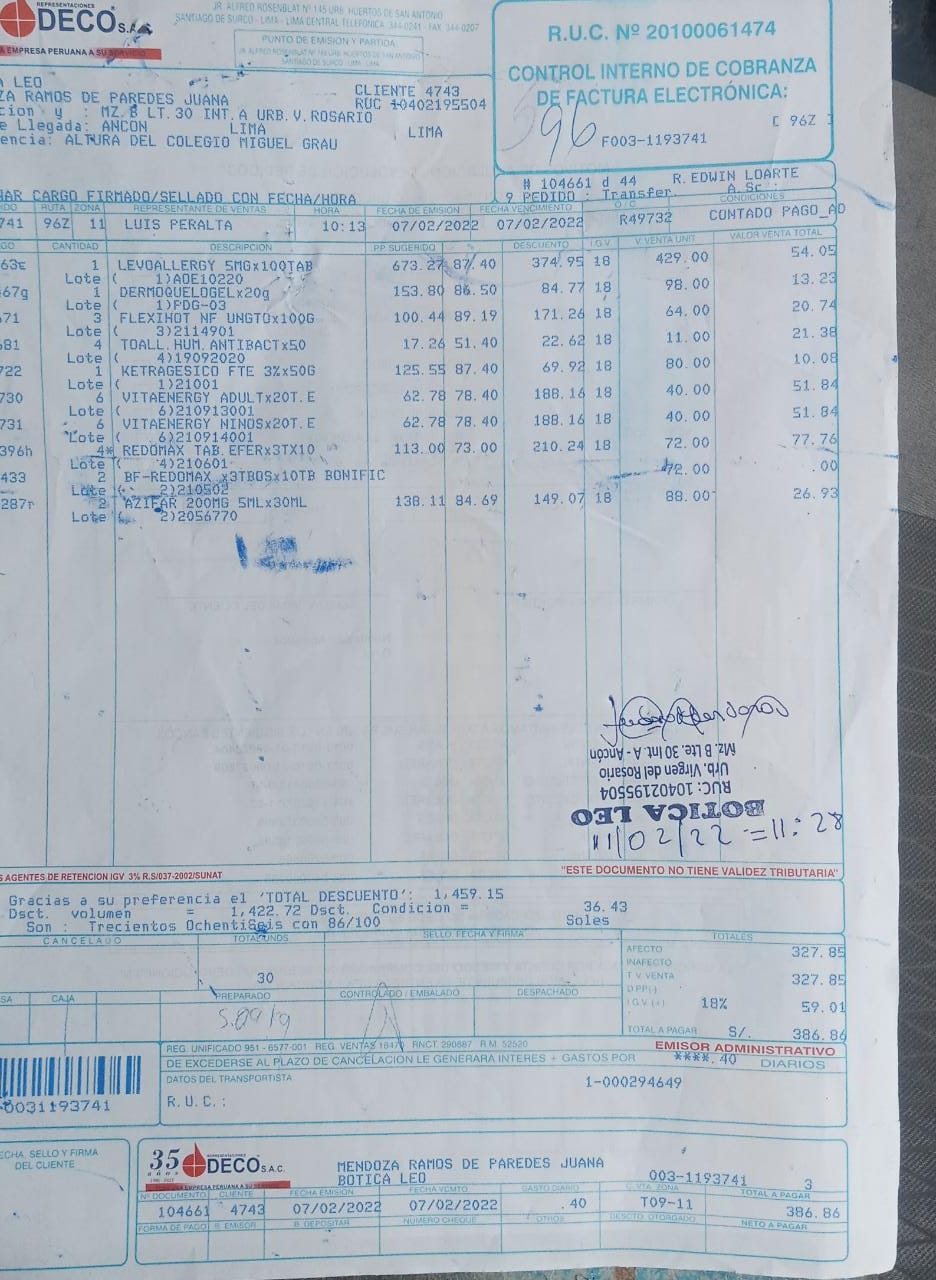 REPRESENTACIONES
DECO S.A.C.
JR. ALFREDO ROSENBLAT Nº 145 URB. HUERTOS DE SAN ANTONIO
SANTIAGO DE SURCO - LIMA - LIMA CENTRAL TELEFÓNICA 344-0241 - FAX 344-0207
A EMPRESA PERUANA A SU SERVICIO
PUNTO DE EMISIÓN Y PARTIDA
JR. ALFREDO ROSENBLAT Nº 145 URB. HUERTOS DE SAN ANTONIO
SANTIAGO DE SURCO - LIMA - LIMA
R.U.C. Nº 20100061474
CONTROL INTERNO DE COBRANZA
DE FACTURA ELECTRÓNICA:
[ 96Z ]
396
F003-1193741
A LEO
ZA RAMOS DE PAREDES JUANA
CLIENTE 4743
RUC 10402195504
cion y : MZ.B LT.30 INT.A URB.V.ROSARIO
e Llegada: ANCON LIMA LIMA
encia: ALTURA DEL COLEGIO MIGUEL GRAU
# 104661 d 44 R.EDWIN LOARTE
9 PEDIDO : Transfer. A.Sc :
AR CARGO FIRMADO/SELLADO CON FECHA/HORA
RUTA ZONA REPRESENTANTE DE VENTAS HORA FECHA DE EMISIÓN FECHA VENCIMIENTO O/C CONDICIONES
741 96Z 11 LUIS PERALTA 10:13 07/02/2022 07/02/2022 R49732 CONTADO PAGO_AD
GO CANTIDAD DESCRIPCIÓN PP.SUGERIDO DESCUENTO I.G.V. V.VENTA UNIT VALOR VENTA TOTAL
63E 1 LEVOALLERGY 5MGx100TAB 673.27 87.40 374.95 18 429.00 54.05
Lote ( 1)A0E10220
67g 1 DERMOQUELOGELx20g 153.80 86.50 84.77 18 98.00 13.23
Lote ( 1)PDG-03
671 3 FLEXIHOT NF UNGTOx100G 100.44 89.19 171.26 18 64.00 20.74
Lote ( 3)2114901
681 4 TOALL.HUM.ANTIBACTx50 17.26 51.40 22.62 18 11.00 21.38
Lote ( 4)19092020
722 1 KETRAGESICO FTE 3%x50G 125.55 87.40 69.92 18 80.00 10.08
Lote ( 1)21001
730 6 VITAENERGY ADULTx20T.E 62.78 78.40 188.16 18 40.00 51.84
Lote ( 6)210913001
731 6 VITAENERGY NINOSx20T.E 62.78 78.40 188.16 18 40.00 51.84
Lote ( 6)210914001
396h 4* REDOMAX TAB.EFERx3TX10 113.00 73.00 210.24 18 72.00 77.76
Lote ( 4)210601
433 2 BF-REDOMAX x3TBOSx10TB BONIFIC 72.00 .00
Lote ( 2)210502
287r 2 AZIFAR 200MG 5MLx30ML 138.11 84.69 149.07 18 88.00 26.93
Lote ( 2)2056770
Mz. B Lte. 30 Int. A - Ancón
Urb. Virgen del Rosario
RUC: 10402195504
BOTICA LEO
11/02/22 = 11:28
S AGENTES DE RETENCION IGV 3% R.S/037-2002/SUNAT
"ESTE DOCUMENTO NO TIENE VALIDEZ TRIBUTARIA"
Gracias a su preferencia el 'TOTAL DESCUENTO': 1,459.15
Dsct. volumen = 1,422.72 Dsct. Condicion = 36.43
Son : Trecientos OchentiSeis con 86/100 Soles
CANCELADO TOTAL UNDS. SELLO, FECHA Y FIRMA TOTALES
30
AFECTO 327.85
INAFECTO
T.V. VENTA 327.85
DPP(-)
I.G.V.(+) 18% 59.01
TOTAL A PAGAR S/. 386.86
SA CAJA PREPARADO CONTROLADO / EMBALADO DESPACHADO
REG. UNIFICADO 951 - 6577-001 REG. VENTAS 18471 RNCT. 290887 R.M. 52520
EMISOR ADMINISTRATIVO
DE EXCEDERSE AL PLAZO DE CANCELACION LE GENERARA INTERES + GASTOS POR ****.40 DIARIOS
DATOS DEL TRANSPORTISTA
1-000294649
R.U.C.:
0031193741
ECHA, SELLO Y FIRMA
DEL CLIENTE
35 años
REPRESENTACIONES
DECO S.A.C.
MENDOZA RAMOS DE PAREDES JUANA
BOTICA LEO
003-1193741 3
Nº DOCUMENTO CLIENTE FECHA EMISIÓN FECHA VCMTO GASTO DIARIO C. VTA. ZONA TOTAL A PAGAR
104661 4743 07/02/2022 07/02/2022 .40 T09-11 386.86
FORMA DE PAGO B. EMISOR B. DEPOSITAR NÚMERO CHEQUE OTROS DESCTO. OTORGADO NETO A PAGAR